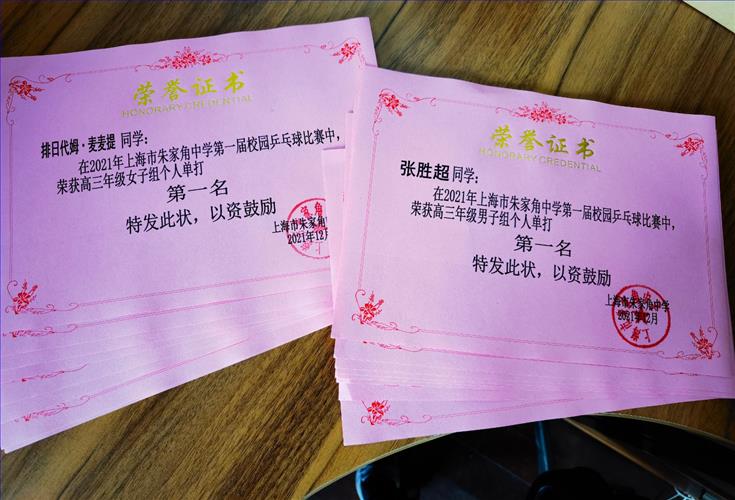 荣誉证书
HONORARY CREDENTIAL
排日代姆·麦麦提 同学：
在2021年上海市朱家角中学第一届校园乒乓球比赛中，
荣获高三年级女子组个人单打
第一名
特发此状，以资鼓励
上海市朱家角
2021年12月
荣誉证书
HONORARY CREDENTIAL
张胜超 同学：
在2021年上海市朱家角中学第一届校园乒乓球比赛中，
荣获高三年级男子组个人单打
第一名
特发此状，以资鼓励
上海市朱家角中学
2021年12月